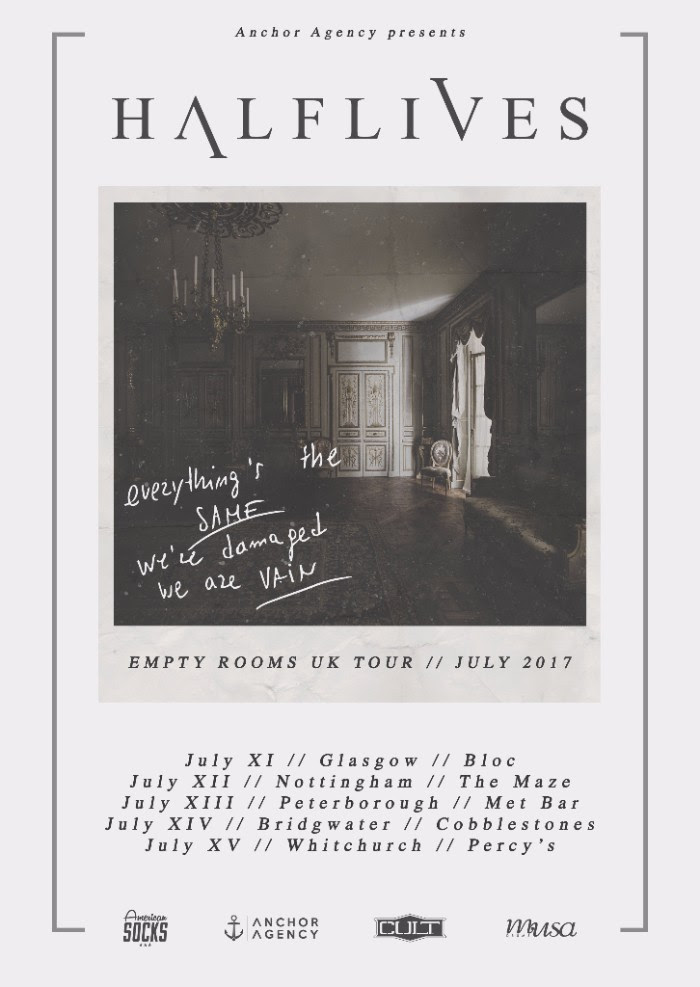 Anchor Agency presents
HALFLIVES
everything's the
SAME
we're damaged
we are VAIN
EMPTY ROOMS UK TOUR // JULY 2017
July XI // Glasgow // Bloc
July XII // Nottingham // The Maze
July XIII // Peterborough // Met Bar
July XIV // Bridgwater // Cobblestones
July XV // Whitchurch // Percy's
American
SOCKS
ANCHOR
AGENCY
CULT
Musa